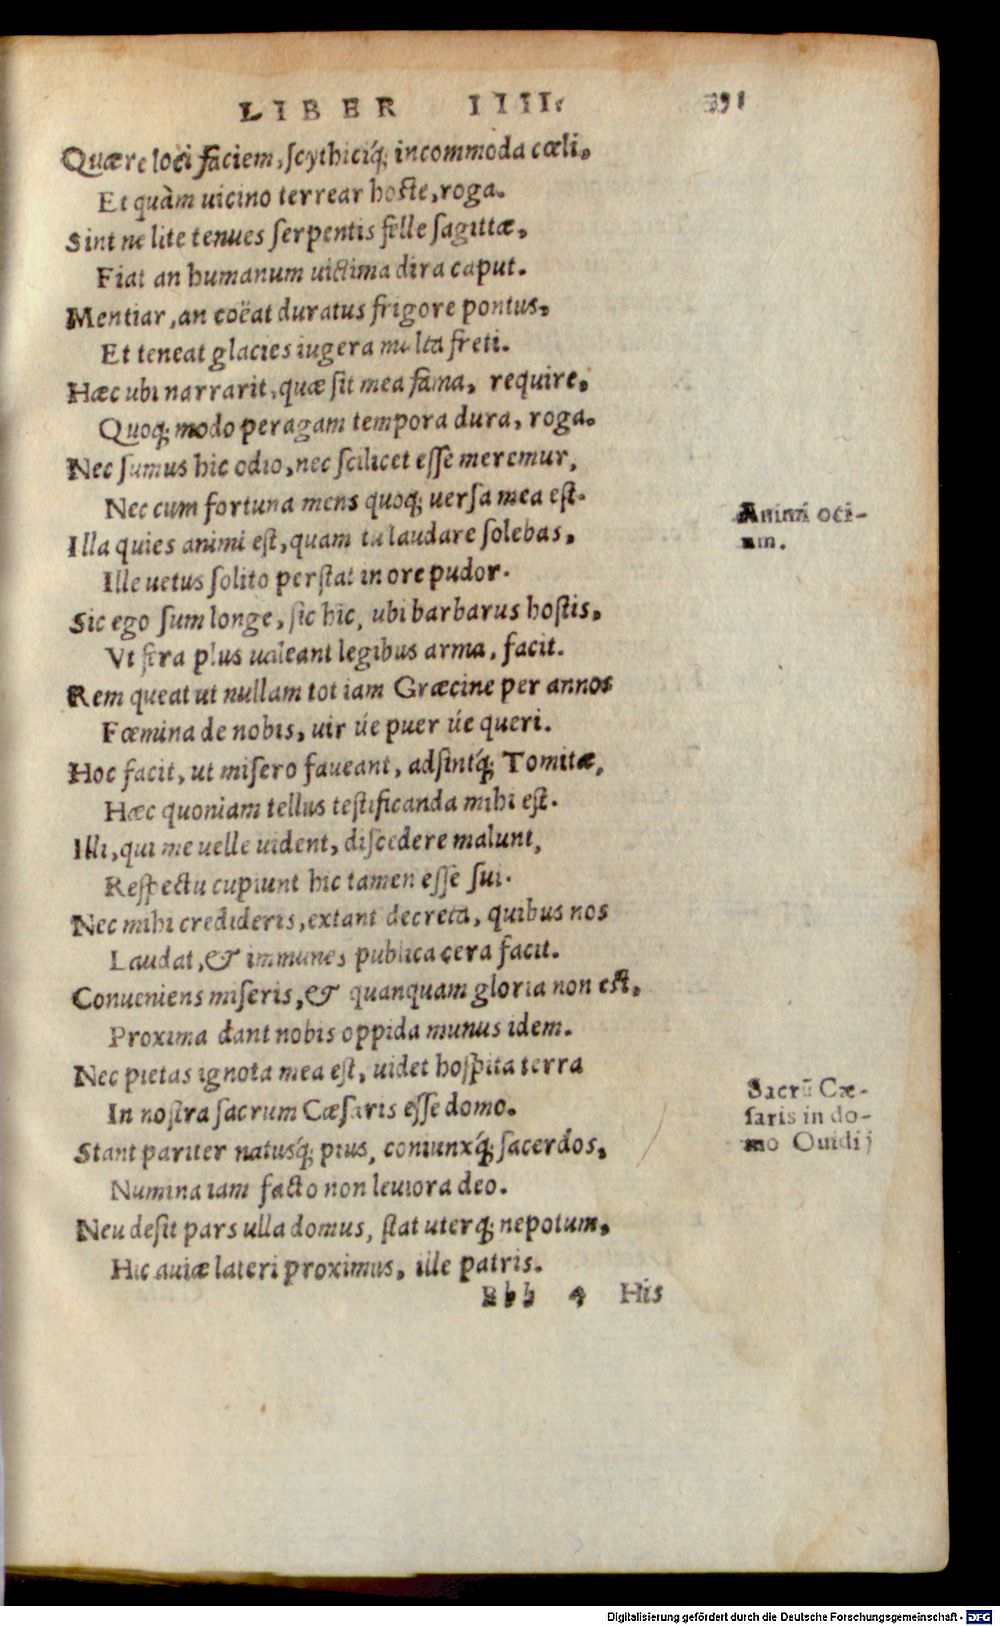 LIBER IIII.
Quære loci faciem, ſcythiciq́; incommoda cœli.
Et quàm uicino terrear hoſte, roga.
Sint ne lite tenues ſerpentis felle ſagittæ,
Fiat an humanum uictima dira caput.
Mentiar, an coëat duratus frigore pontus,
Et teneat glacies iugera multa freti.
Hæc ubi narrarit, quæ ſit mea fama, require,
Quoq; modo peragam tempora dura, roga.
Nec ſumus hic odio, nec ſcilicet eſſe meremur,
Nec cum fortuna mens quoq; uerſa mea eſt.
Illa quies animi eſt, quam tu laudare ſolebas,
Ille uetus ſolito perſtat in ore pudor.
Animi oci-
um.
Sic ego ſum longe, ſic hic, ubi barbarus hoſtis,
Vt fera plus ualeant legibus arma, facit.
Rem queat ut nullam tot iam Græcine per annos
Fœmina de nobis, uir úe puer úe queri.
Hoc facit, ut miſero faueant, adſintq́; Tomitæ,
Hæc quoniam tellus teſtificanda mihi eſt.
Illi, qui me uelle uident, diſcedere malunt,
Reſpectu cupiunt hic tamen eſſe ſui.
Nec mihi credideris, extant decreta, quibus nos
Laudat, & immunes publica cera facit.
Conueniens miſeris, & quanquam gloria non eſt,
Proxima dant nobis oppida munus idem.
Nec pietas ignota mea eſt, uidet hoſpita terra
In noſtra ſacrum Cæſaris eſſe domo.
Stant pariter natuſq́; pius, coniunxq́; ſacerdos,
Numina iam facto non leuiora deo.
Sacrũ Cæ-
ſaris in do-
mo Ouidij
Neu deſit pars ulla domus, ſtat uterq; nepotum,
Hic auiæ lateri proximus, ille patris.
Bbb 4 His
Digitalisierung gefördert durch die Deutsche Forschungsgemeinschaft - DFG